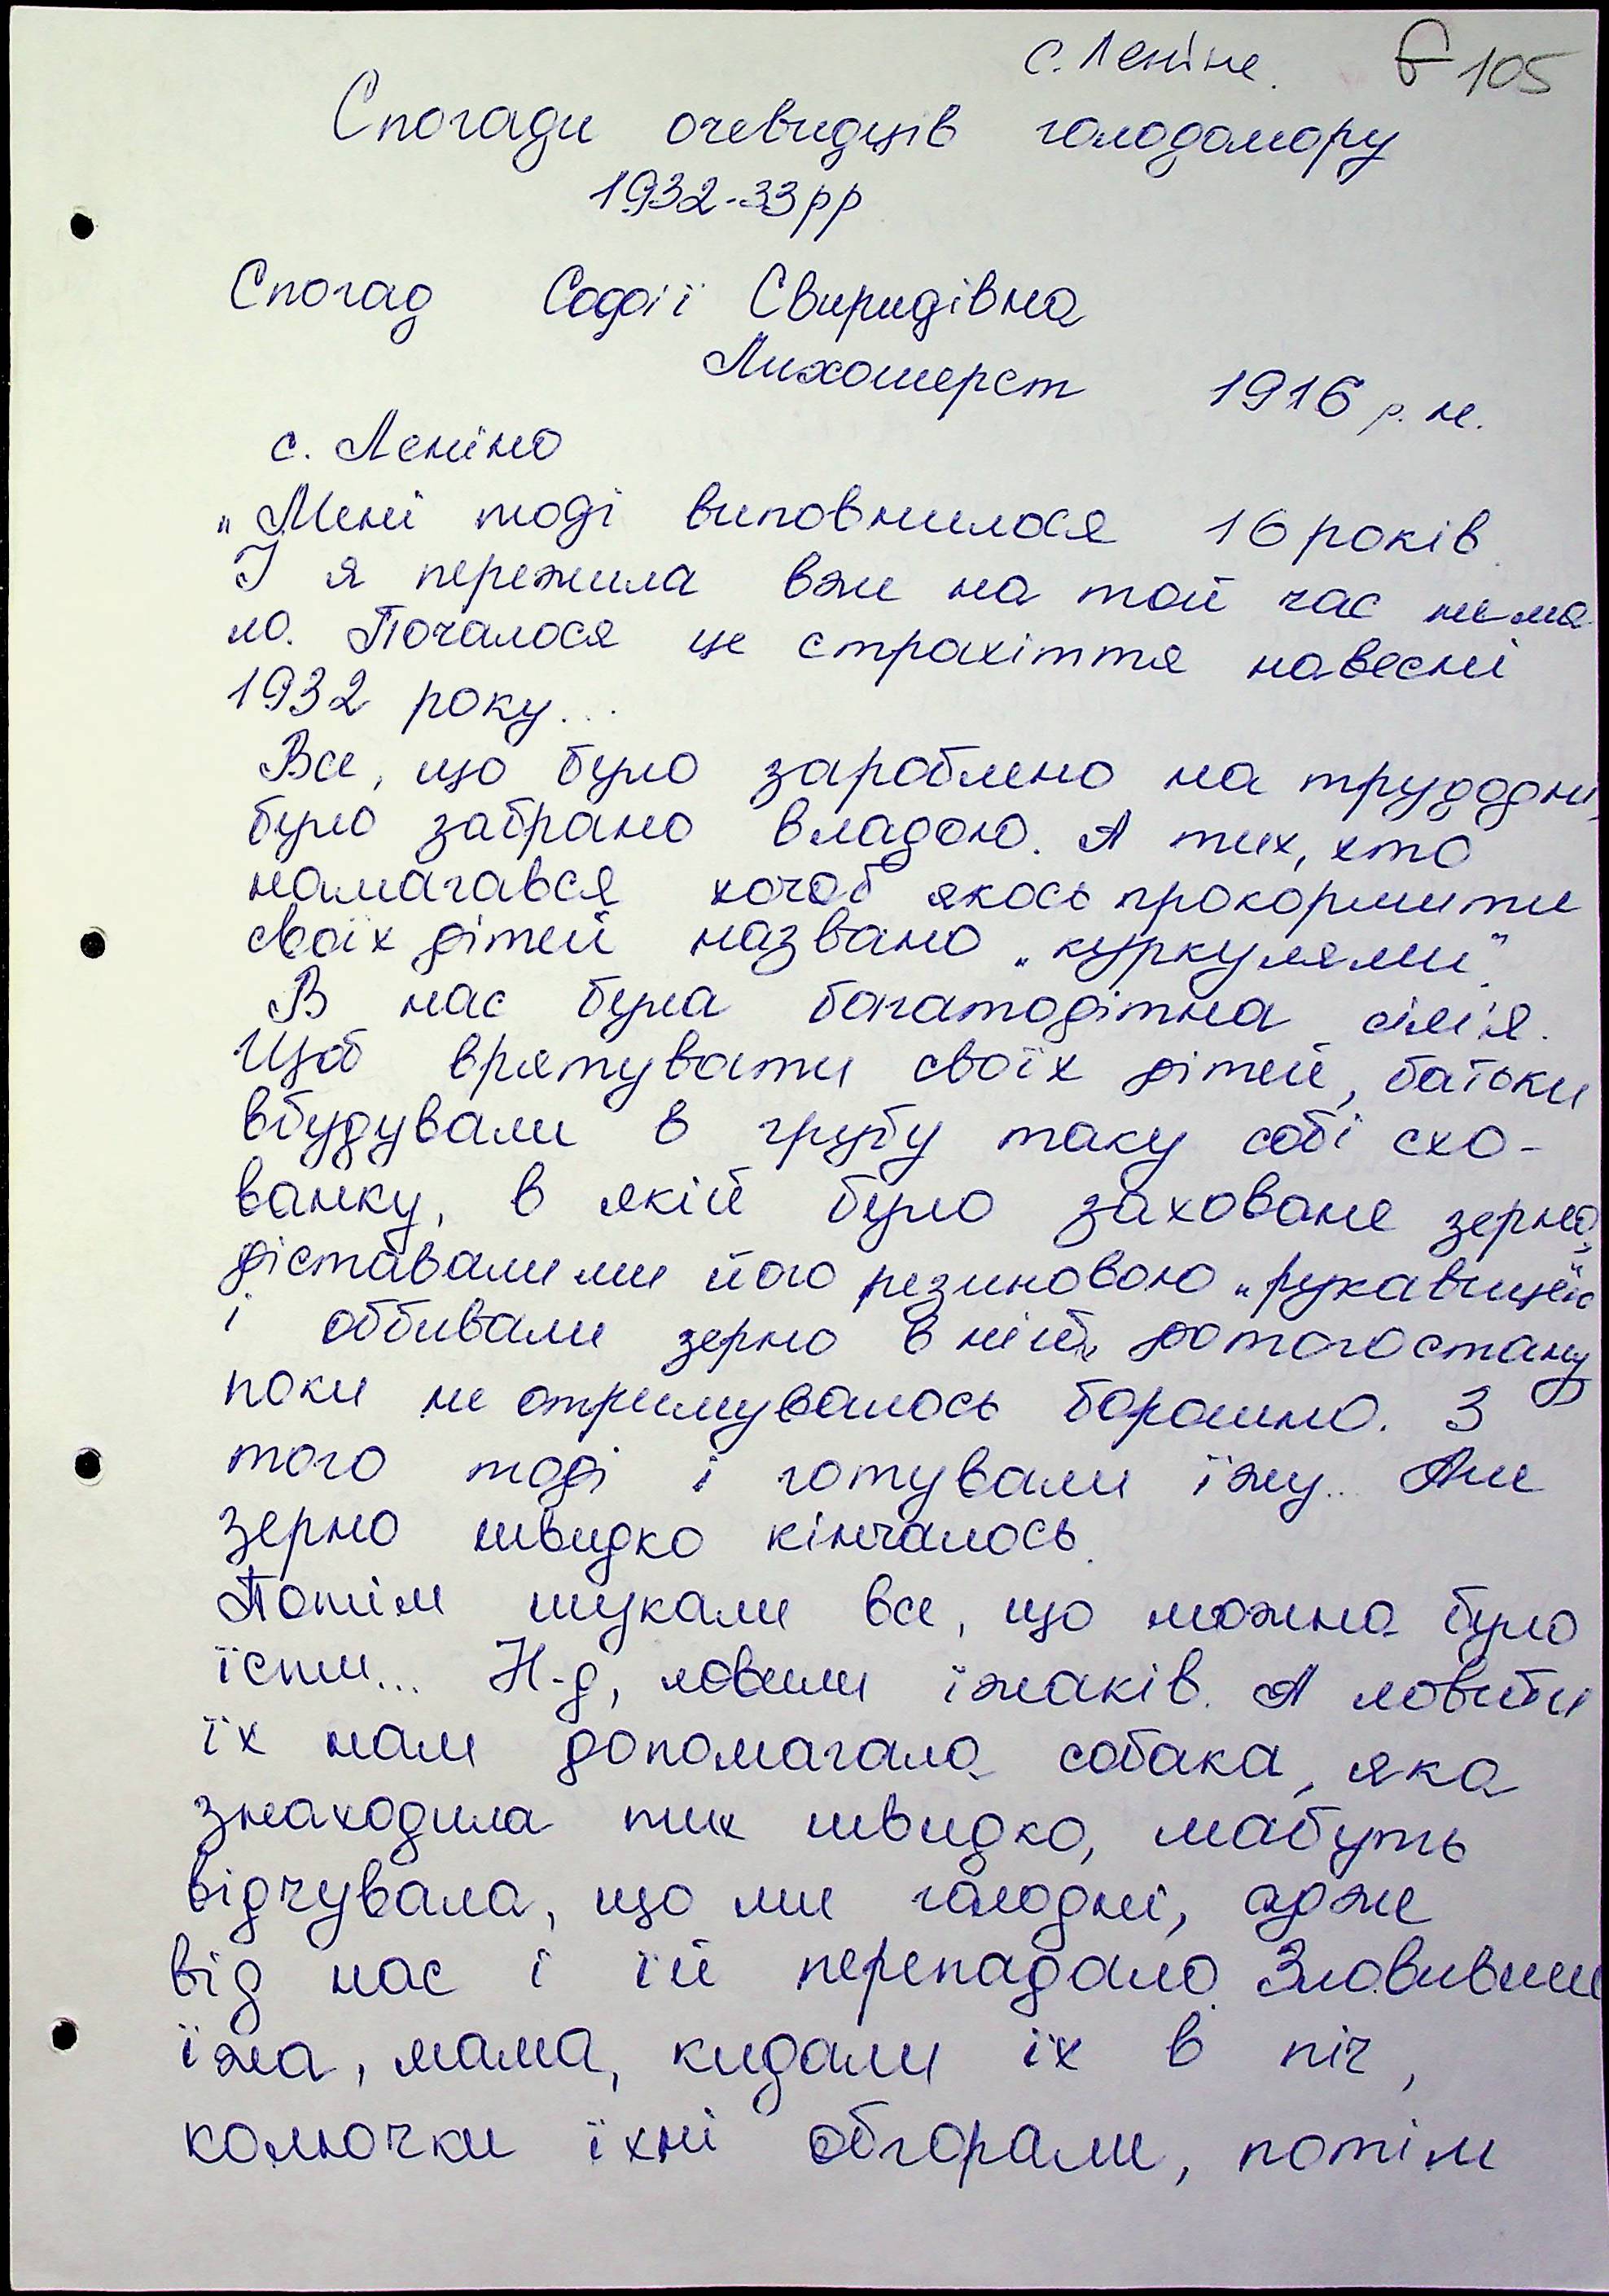 с. Леніне. 105
Спогади очевидців голодомору
1932-33рр
Спогад Софії Свиридівна
Лихошерст 1916 р. н.
с. Леніно
„Мені тоді виповнилося 16 років.
І я пережила вже на той час нема
ло. Почалося це страхіття навесні
1932 року...
Все, що було зароблено на трудодні,
було забрано владою. А тих, хто
намагався хочаб якось прокормити
своїх дітей названо „куркулями".
В нас була багатодітна сім'я.
Щоб врятувати своїх дітей, батьки
вбудували в грубу таку собі схо-
ванку, в якій було заховане зерно,
діставали ми його резиновою „рукавицею"
і оббивали зерно в ній до того стану
поки не отримувалось борошно. З
того тоді і готували їжу... Але
зерно швидко кінчалось.
Потім шукали все, що можна було
їсти... Н-д, ловили їжаків. А ловити
їх нам допомагала собака, яка
знаходила тих швидко, мабуть
відчувала, що ми голодні, адже
від нас і їй перепадало. Зловивши
їжа, мама, кидали їх в піч,
колючки їхні обгорали, потім